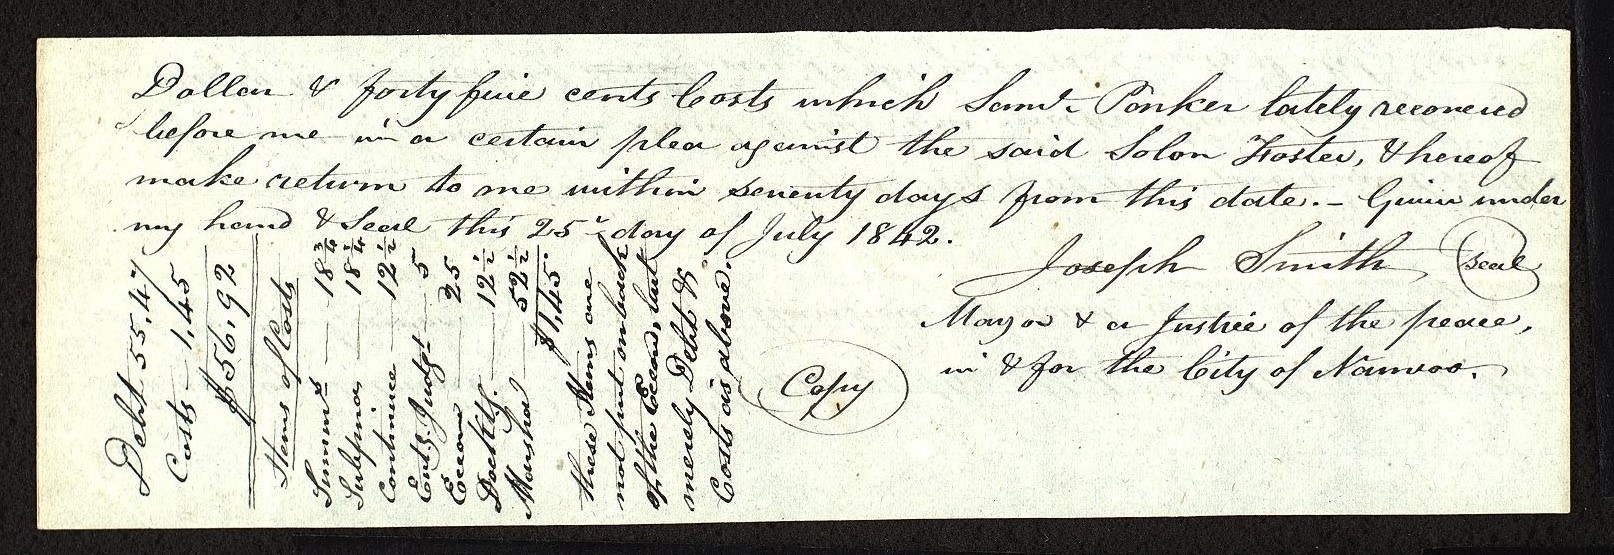 Dollar & forty five cents Costs which Saml. Parker lately recovered
before me in a certain plea against the said Solon Foster, & hereof
make return to me within seventy days from this date. – Given under
my hand & Seal this 25th day of July 1842.
Joseph Smith, seal
Mayor & a Justice of the peace,
in & for the City of Nauvoo.
Copy
Debt 55.47
Costs – 1,45
$56.92
Items of Costs
Summs — 18 3/4
Subpina — 18 1/4
Continuce — 12 1/2
Entg Judgt — 5
Execun — 25
Docktg. — 12 1/2
Marshal — 52 1/2
$1,45.
these Items are
not put on back
of the Execun, but
merely Debt &
Costs as above.